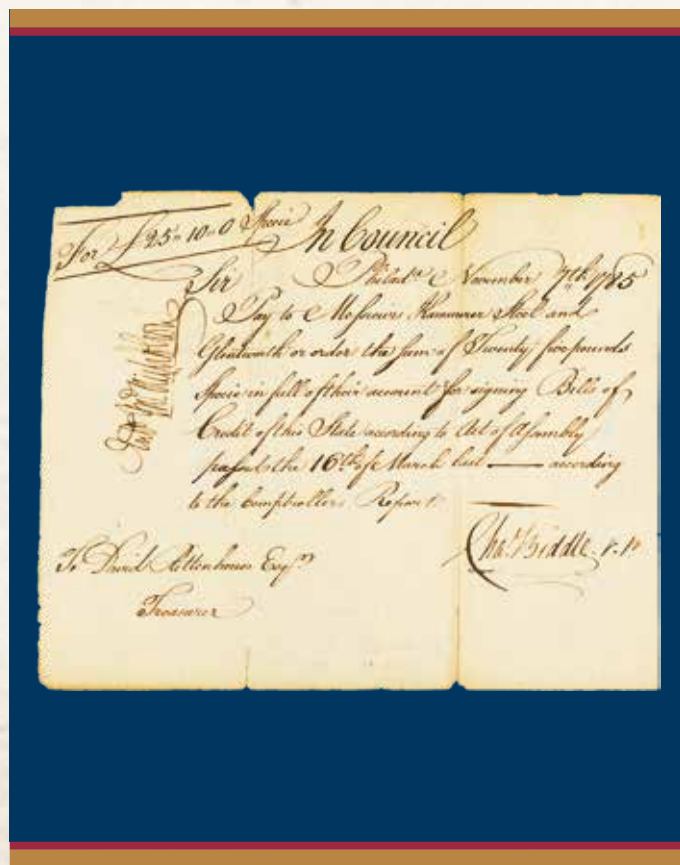 For £25"10"0 Specie
In Council
Sir Philad.a November 7th 1785
Pay to Messieurs Kammerer Steel and
Glentworth or order the sum of Twenty five pounds
Specie in full of their account for signing Bills of
Credit of this State according to Act of Assembly
passed the 16th of March last — according
to the Comptrollers Report.
Chas Biddle. v. P.
To David Rittenhouse Esqr.
Treasurer